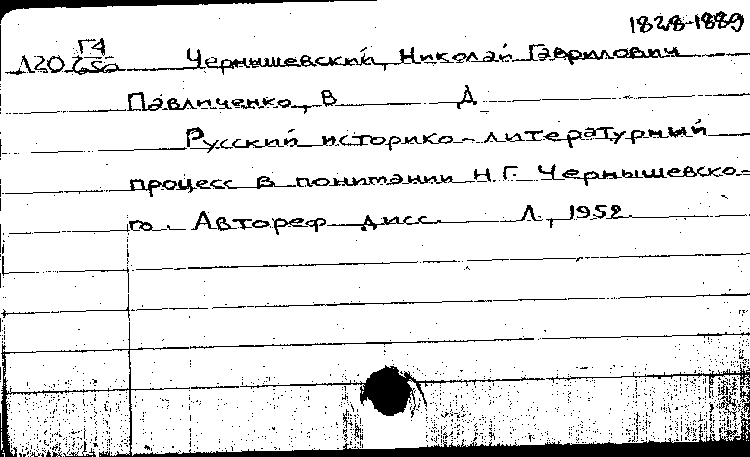 1828-1889
Г4
Л20 Чернышевский, Николай Гаврилович
Павличенко, В Д
Русский историко-литературный
процесс в понимании Н.Г. Чернышевско-
го. Автореф дисс. Л., 1952.